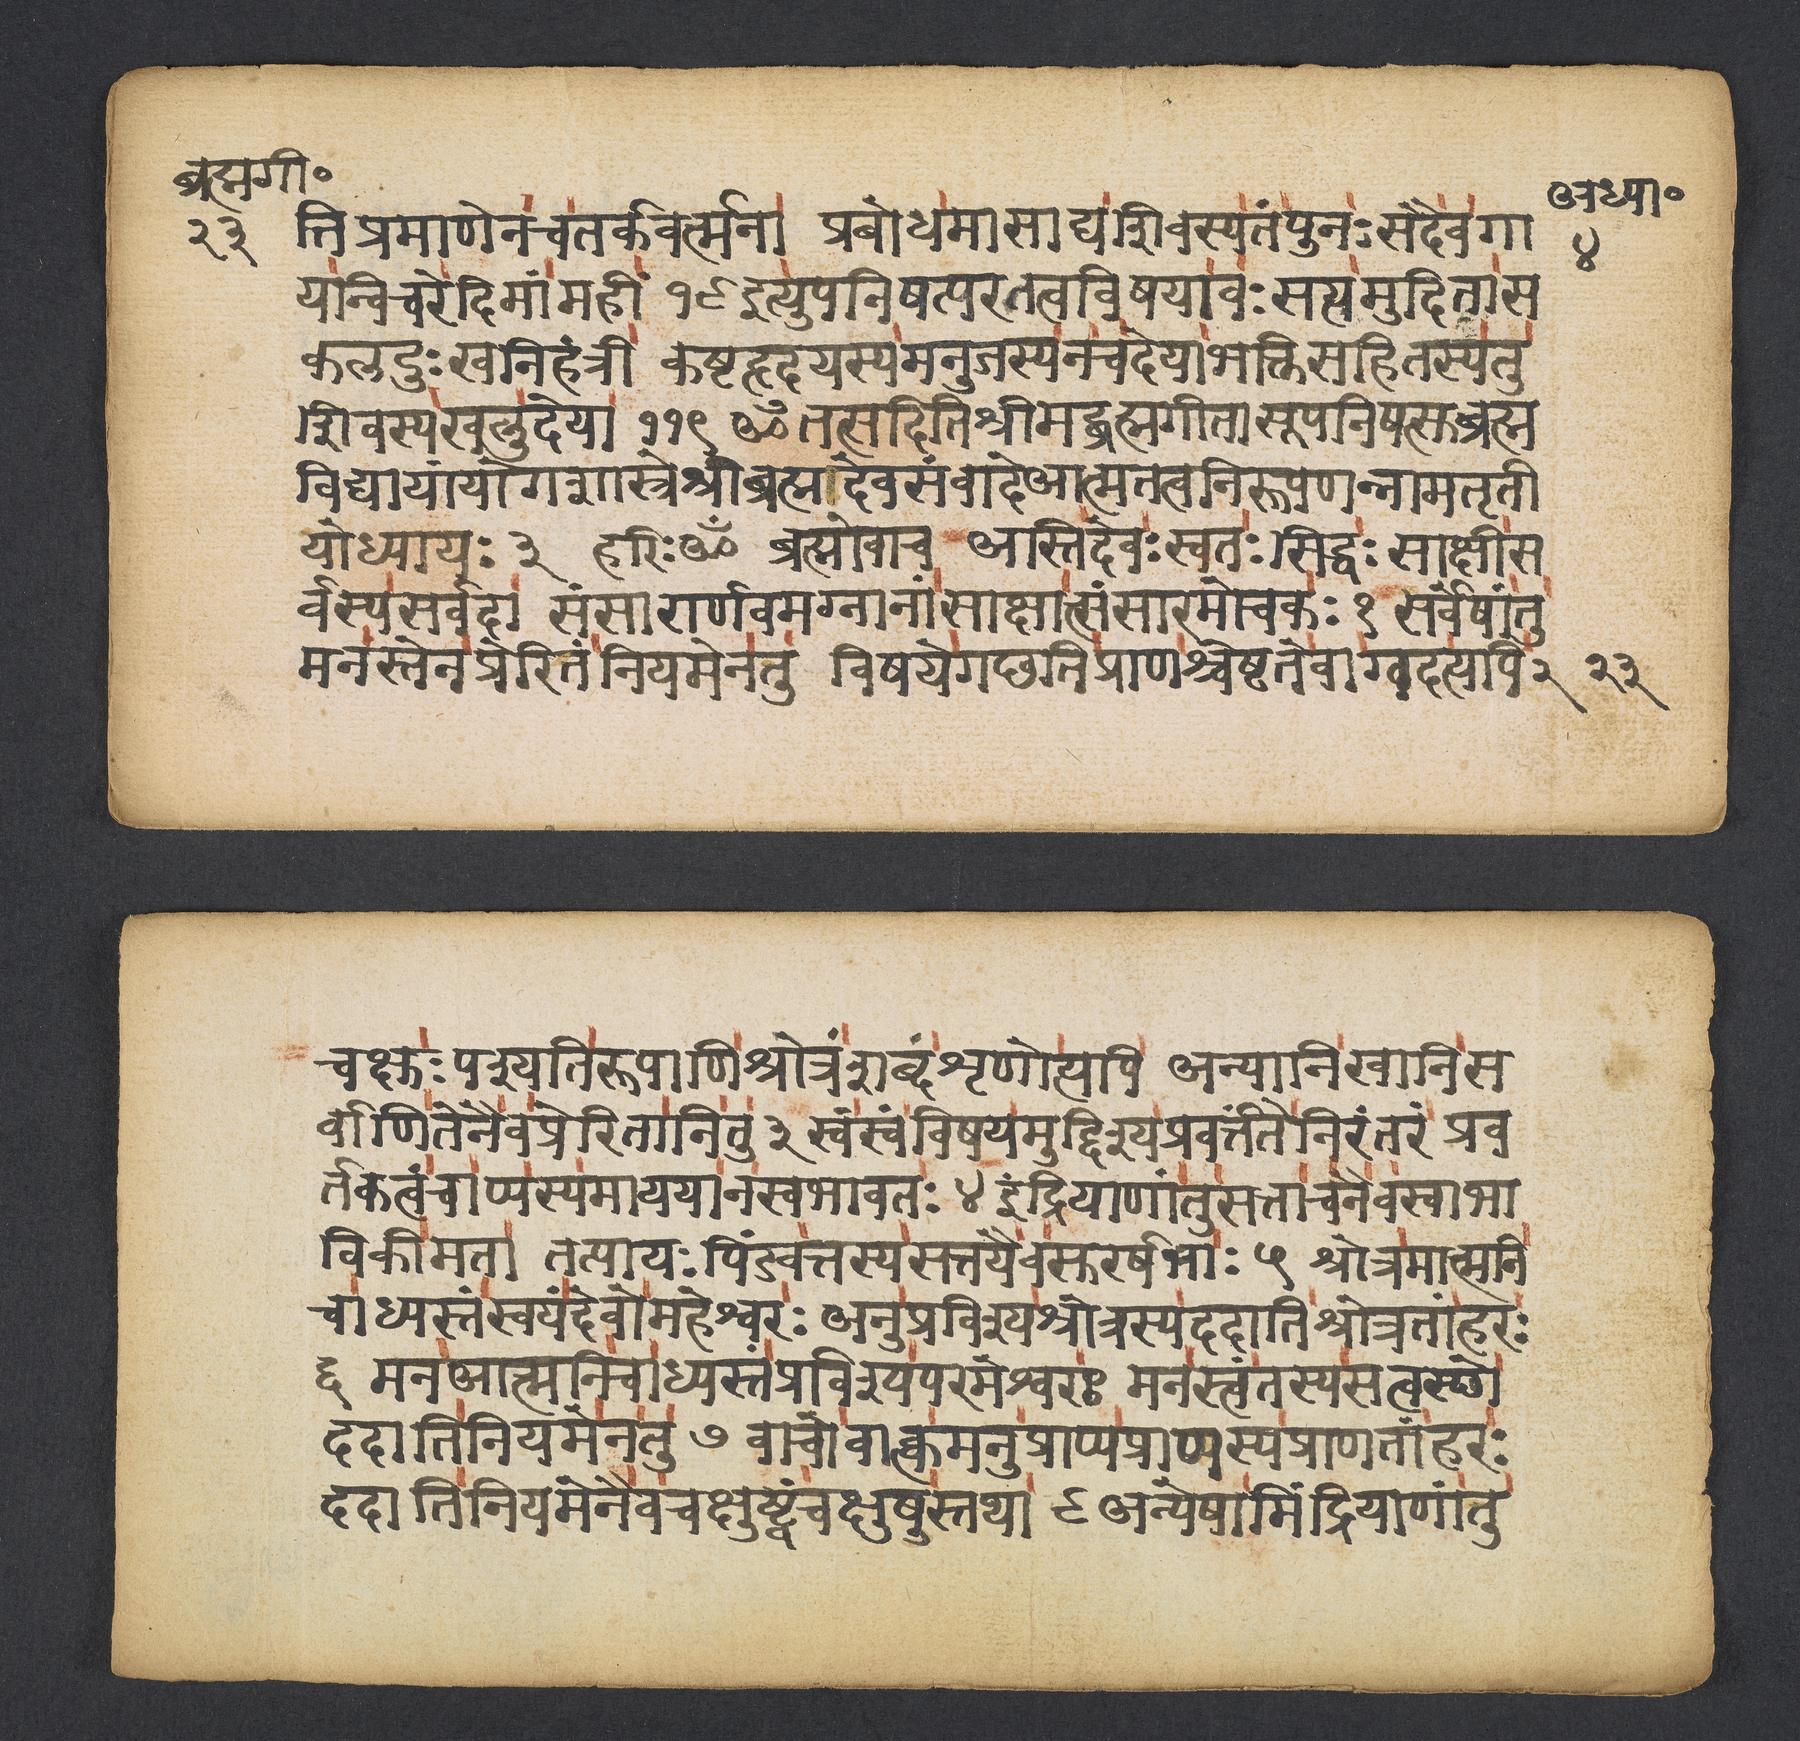 ब्रह्मगी॰
अध्या॰
२३
४
त्ति प्रमाणेनचतर्कवर्त्मना प्रबोधमासाद्यशिवस्यतंपुनःसदैवगा
यन्विचरेदिमांमहीं १९इत्युपनिषत्परतत्वविषयावःसत्यमुदितास
कलदुःखनिहंत्री कष्टहृदयस्यमनुजस्यनचदेयाभक्तिसहितस्यतु
शिवस्यखलुदेया ११९ ॐतत्सदितिश्रीमद्ब्रह्मगीतासूपनिषत्सुब्रह्म
विद्यायांयोगशास्त्रेश्रीब्रह्मदेवसंवादेआत्मतत्वनिरूपणन्नामतृती
योध्यायः ३ हरिःॐ ब्रह्मोवाच अस्तिदेवःस्वतःसिद्धःसाक्षीस
र्वस्यसर्वदा संसारार्णवमग्नानांसाक्षात्संसारमोचकः १ सर्वेषांतु
मनस्तेनप्रेरितंनियमेनतु विषयेगछतिप्राणश्चेष्टतेवाग्वदत्यपि २ २३
चक्षुःपश्यतिरूपाणिश्रोत्रंशब्दंशृणोत्यपि अन्यानिखानिस
र्वाणितेनैवप्रेरितानितु ३ स्वंस्वंविषयमुद्दिश्यप्रवर्त्तंतेनिरंतरं प्रव
र्तकत्वंचाप्यस्यमाययानस्वभावतः ४ इंद्रियाणांतुसत्ताचनैवस्वाभा
विकीमता तत्पायःपिंडवत्तस्यसत्तयैवसुरर्षभाः ५ श्रोत्रमात्मनि
चाध्यस्तंस्वयंदेवोमहेश्वरः अनुप्रविश्यश्रोत्रस्यददातिश्रोत्रतांहरः
६ मनआत्मनिचाध्यस्तंप्रविश्यपरमेश्वरः मनस्त्वंतस्यसत्वस्छो
ददातिनियमेनतु ७ वाचोवात्क्वमनुप्राप्यप्राणस्यप्राणतांहरः
ददातिनियमेनैवचक्षुष्ट्वंचक्षुषुस्तथा ८अन्येषामिंद्रियाणांतु